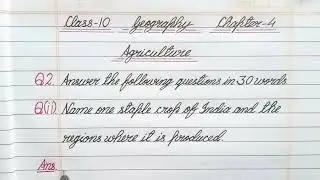 Class-10 Geography Chapter-4
Agriculture
Q2. Answer the following questions in 30 words.
Q(ii). Name one staple crop of India and the
regions where it is produced.
Ans.